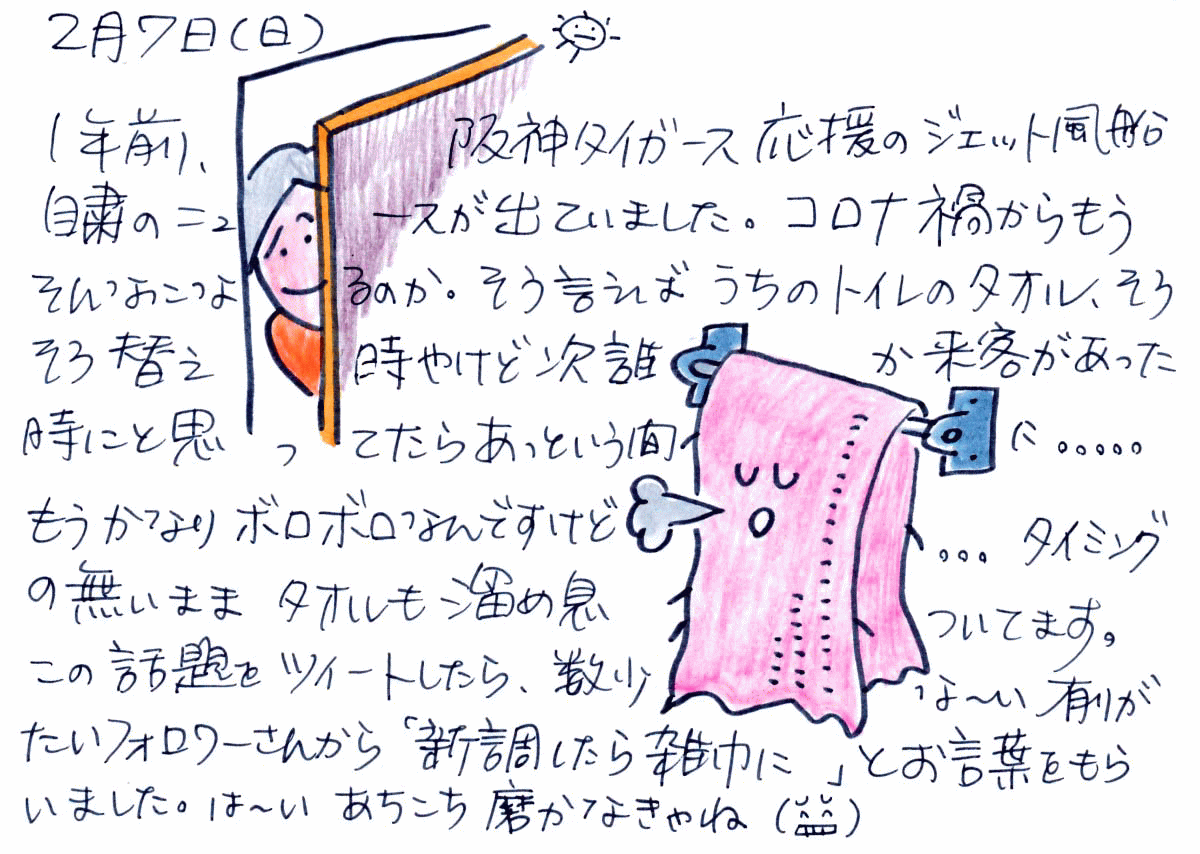 2月7日(日)
1年前、阪神タイガース応援のジェット風船
自粛のニュースが出ていました。コロナ禍からもう
そんなにたつよるのか。そう言えばうちのトイレのタオル、そろ
そろ替え時やけど次誰か来客があった
時にと思ってたらあっという間に.....
もうかなりボロボロなんですけど...タイミング
の無いままタオルも溜め息ついてます。
この話題をツイートしたら、数少な〜い有りが
たいフォロワーさんから「新調したら雑巾に」とお言葉をもら
いました。は〜い あちこち磨かなきゃね